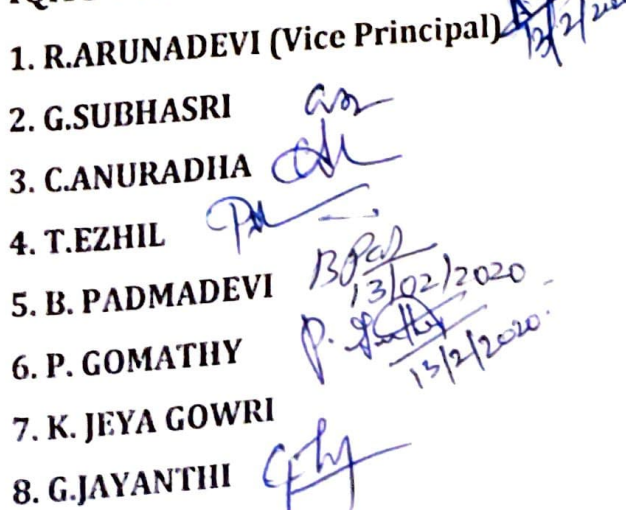 1. R.ARUNADEVI (Vice Principal) 13/2/20
2. G.SUBHASRI
3. C.ANURADHA
4. T.EZHIL
5. B. PADMADEVI 13/02/2020
6. P. GOMATHY P. 13/2/2020
7. K. JEYA GOWRI
8. G.JAYANTHI